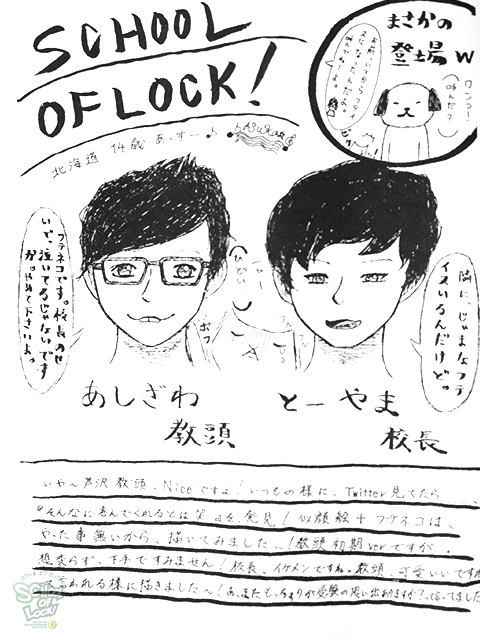 SCHOOL
OF LOCK!
北海道 14歳 あっすー♪
まさかの
登場w
ワンつ!
呼んだ?
お前、いつからフテ
イヌになったんだよ。
フテネコです。校長のせ
いで、泣いてるじゃないです
か。やめて下さいよ。
ひどい
ボフ
隣に、じゃまなフテ
イヌいるんだけど。
あしざわ
教頭
とーやま
校長
いや〜芦沢教頭、Niceですよ!いつもの様に、Twitter見てたら
『そんなに喜んでくれるとは笑』を発見!似顔絵+フテネコは、
やった事無いから、描いてみました..!教頭初期verですが。
相変らず、下手ですみません!校長、イケメンですね。教頭、可愛いいですね
言われる様に描きました〜!あ、またも、ちょりが受験の思い出出ますか?って言ってました
SCHOOL
OF
LOCK!